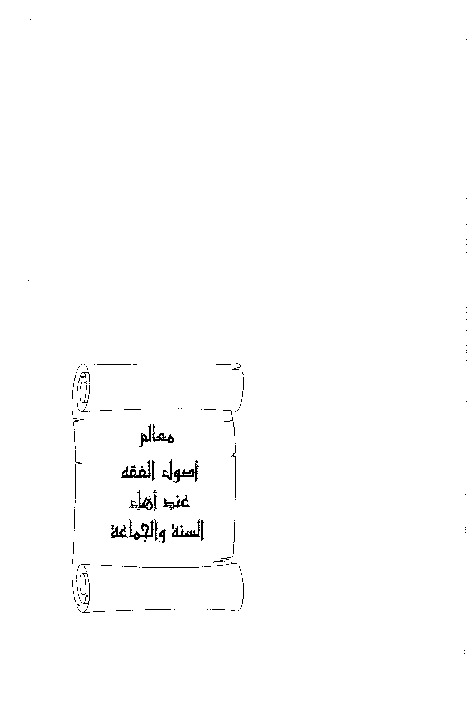 معالم
أصول الفقه
عند أهل
السنة والجماعة